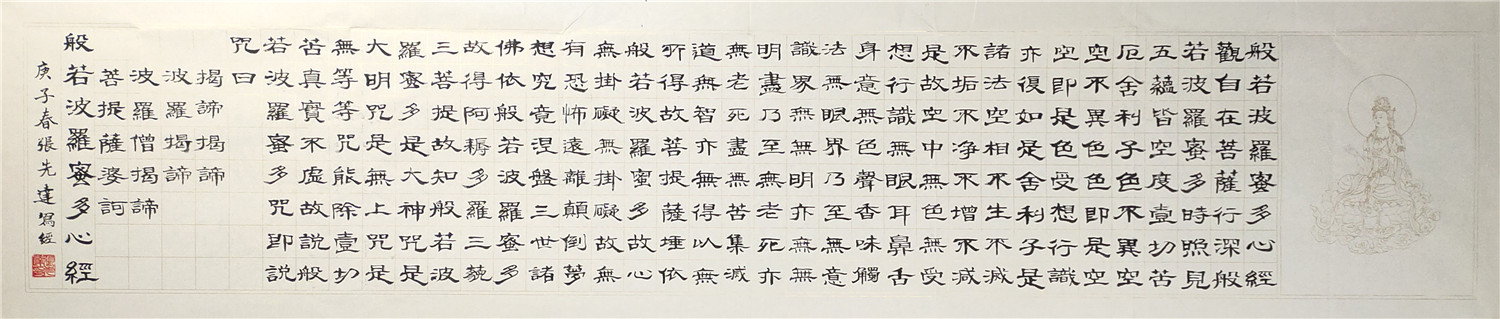 般若波羅蜜多心經
觀自在菩薩行深般
若波羅蜜多時照見
五蘊皆空度壹切苦
厄舍利子色不異空
空不異色色即是空
空即是色受想行識
亦復如是舍利子是
諸法空相不生不滅
不垢不净不增不減
是故空中無色無受
想行識無眼耳鼻舌
身意無色聲香味觸
法無眼界乃至無意
識界無無明亦無無
明盡乃至無老死亦
無老死盡無苦集滅
道無智亦無得以無
所得故菩提薩埵依
般若波羅蜜多故心
無掛礙無掛礙故無
有恐怖遠離顛倒夢
想究竟涅盤三世諸
佛依般若波羅蜜多
故得阿耨多羅三藐
三菩提故知般若波
羅蜜多是大神咒是
大明咒是無上咒是
無等等咒能除壹切
苦真實不虛故說般
若波羅蜜多咒即說
咒曰
揭諦揭諦
波羅揭諦
波羅僧揭諦
菩提薩婆訶
般若波羅蜜多心經
庚子春張先達寫經